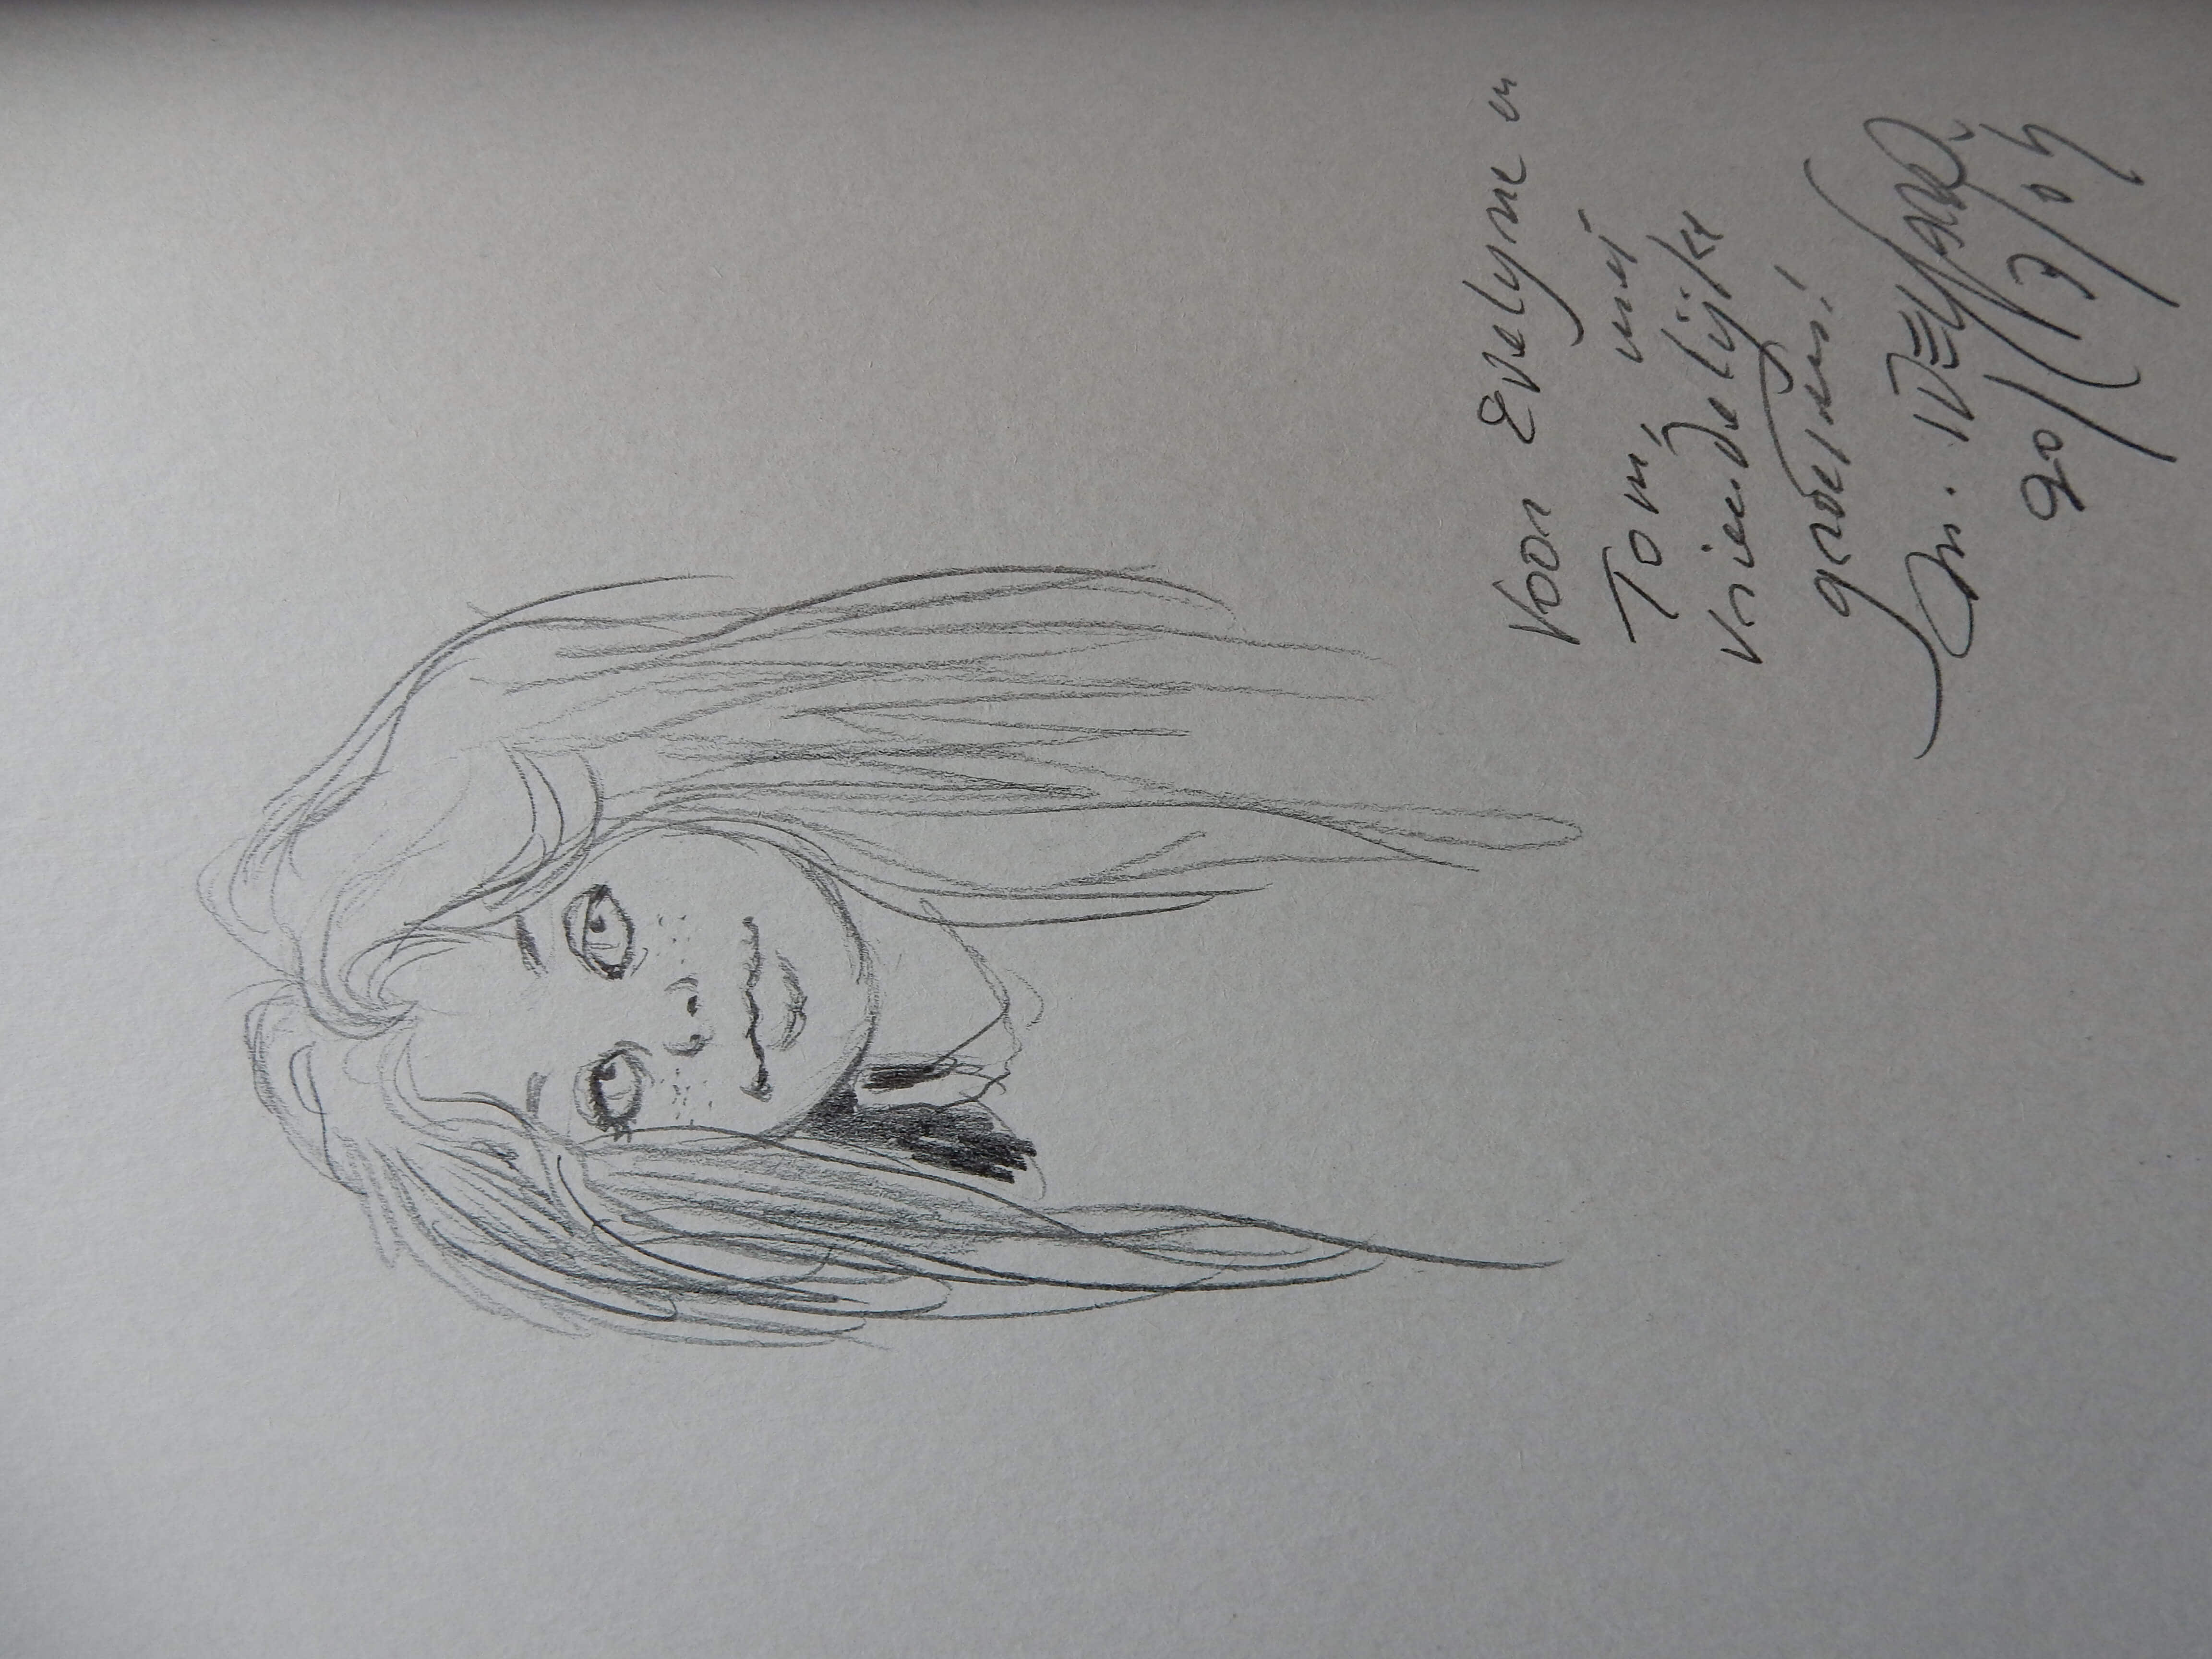 Voor Evelyne en
Tom, met
vriendelijke
groeten!
M.
20/7/04